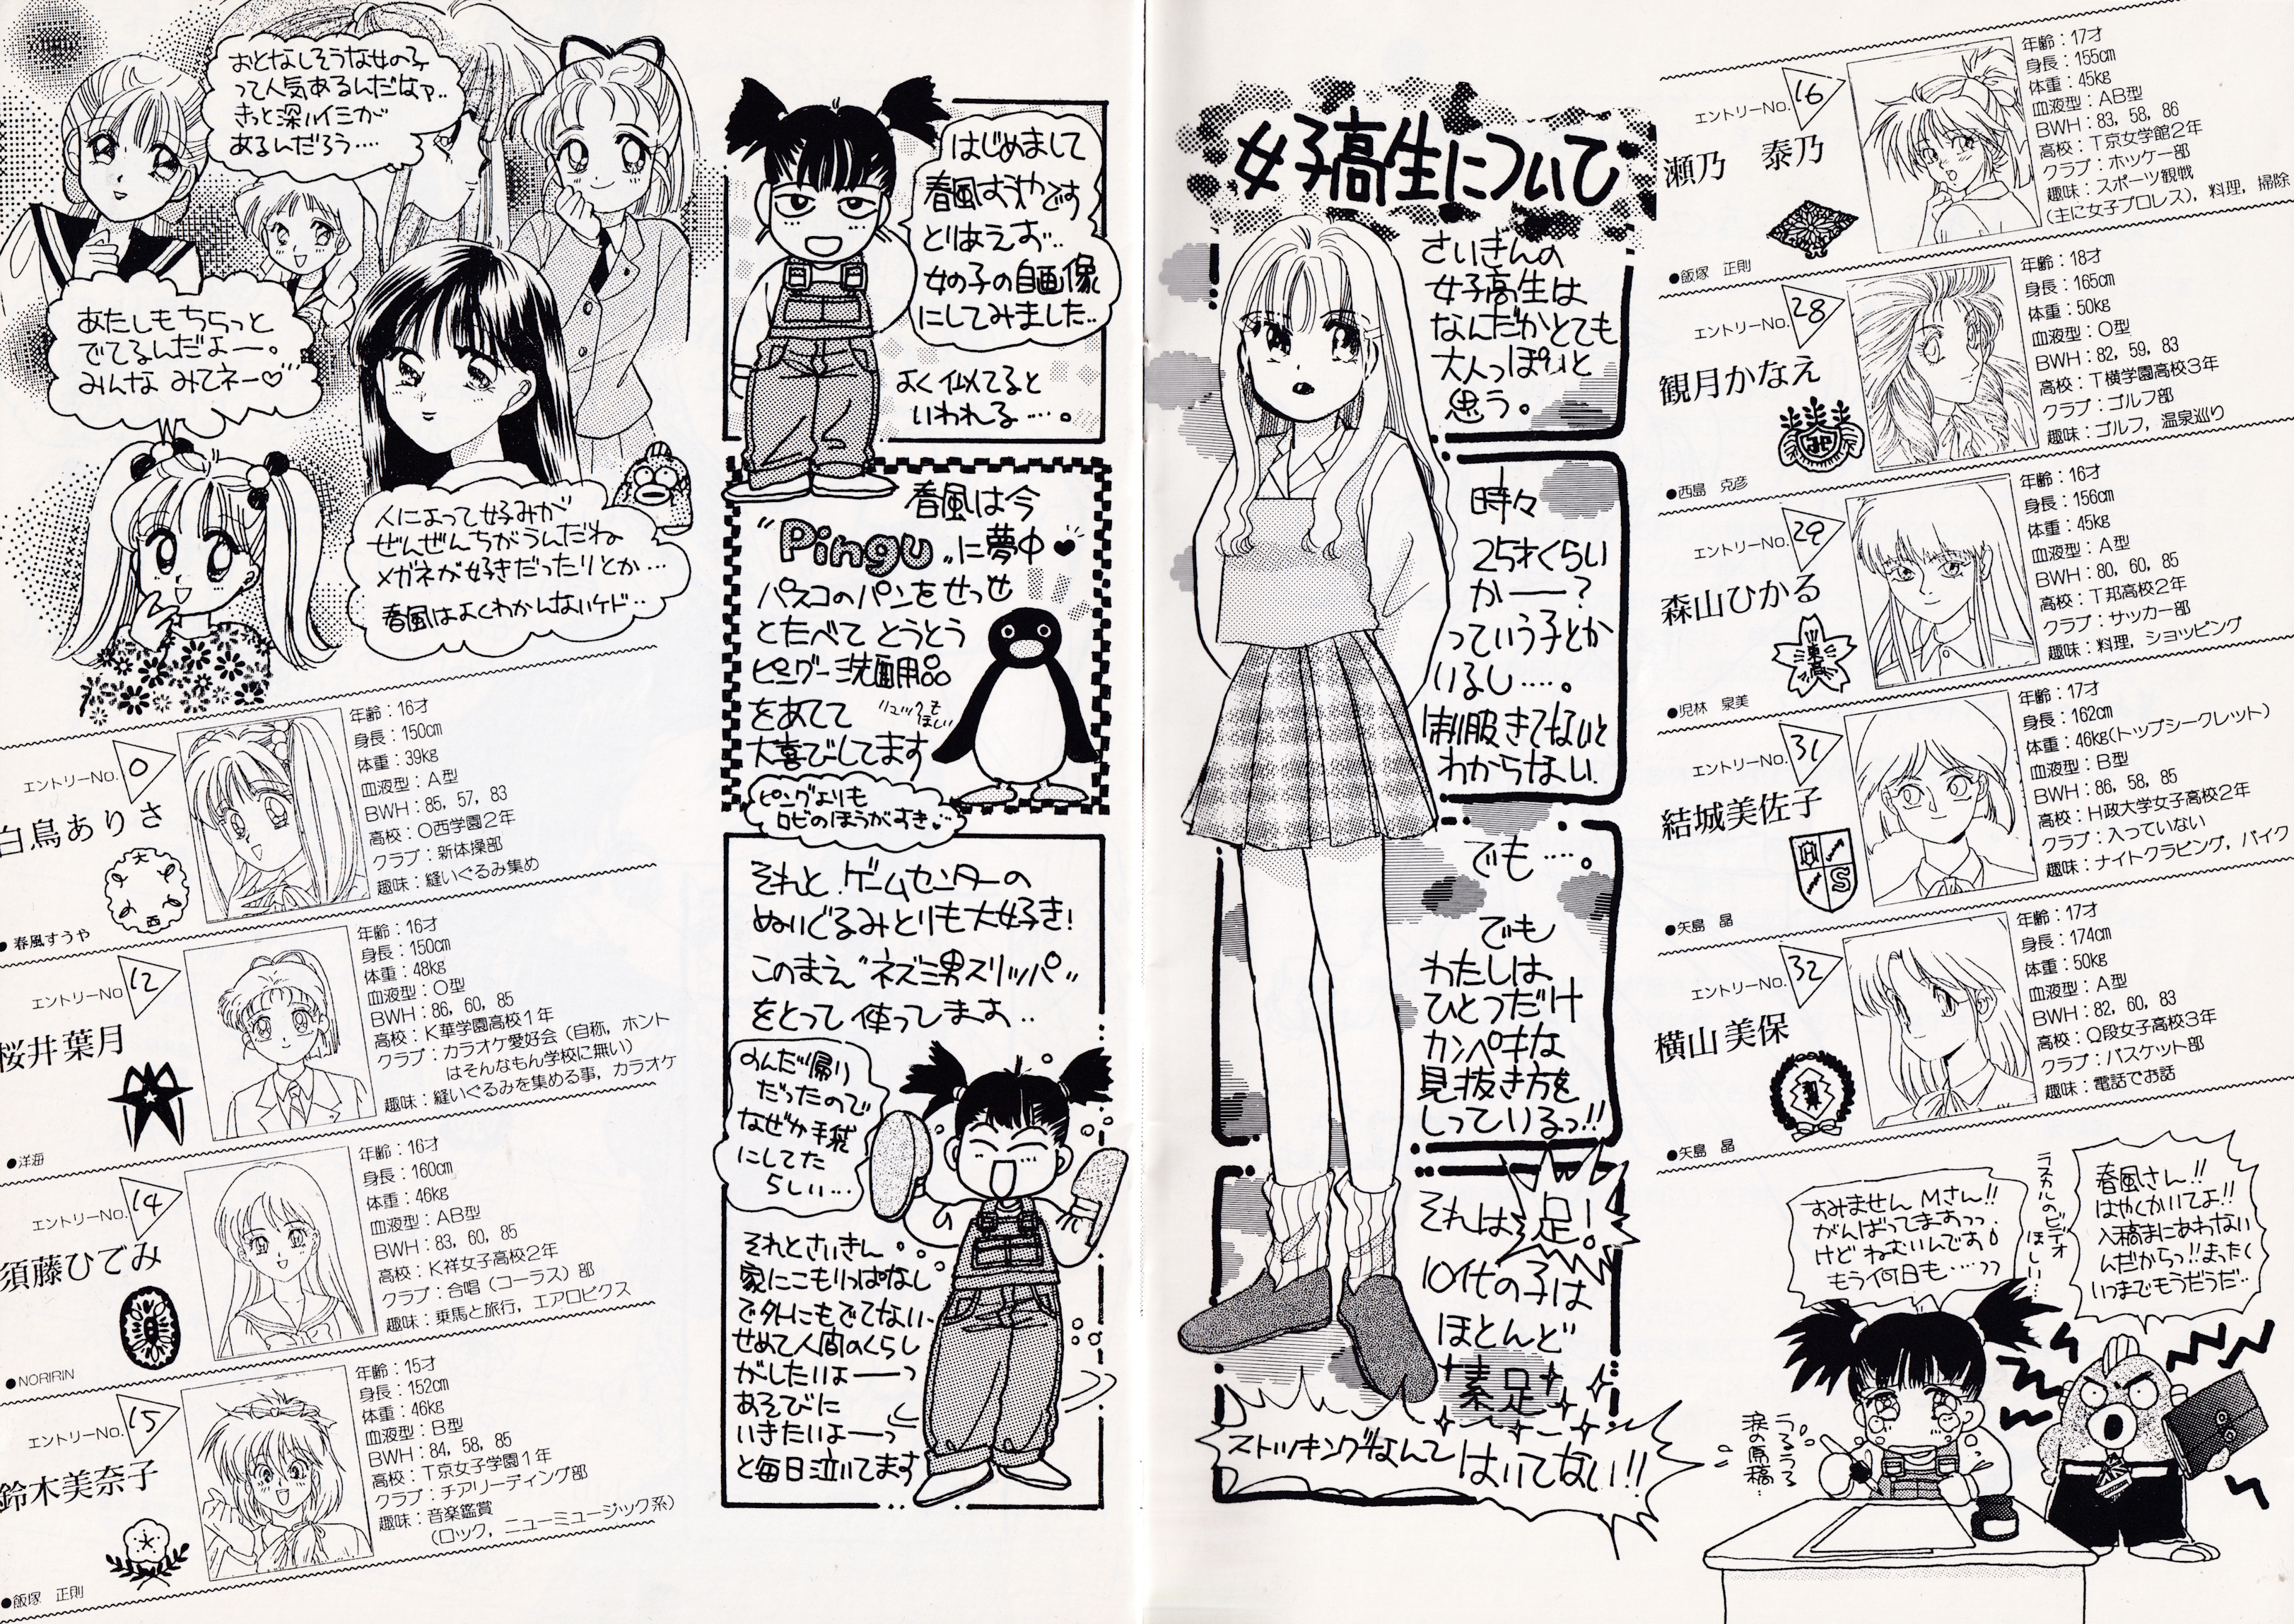 おとなしそうな女の子
って人気あるんだなァ..
きっと深ハイミが
あるんだろう‥‥
あたしもちらっと
でてるんだよー。
みんな みてネー♡
人によって好みが
ぜんぜんちがうんだね
メガネが好きだったりとか…
春風はよくわかんないケド‥
エントリーNo. 0
白鳥ありさ
年齢：16才
身長：150cm
体重：39kg
血液型：A型
BWH：85, 57, 83
高校：O西学園2年
クラブ：新体操部
趣味：縫いぐるみ集め
大
西
●春風すうや
エントリーNo. 12
桜井葉月
年齢：16才
身長：150cm
体重：48kg
血液型：O型
BWH：86, 60, 85
高校：K華学園高校1年
クラブ：カラオケ愛好会（自称，ホント
はそんなもん学校に無い）
趣味：縫いぐるみを集める事，カラオケ
●洋海
エントリーNo. 14
須藤ひでみ
年齢：16才
身長：160cm
体重：46kg
血液型：AB型
BWH：83, 60, 85
高校：K祥女子高校2年
クラブ：合唱（コーラス）部
趣味：乗馬と旅行，エアロビクス
●NORIRIN
エントリーNo. 15
鈴木美奈子
年齢：15才
身長：152cm
体重：46kg
血液型：B型
BWH：84, 58, 85
高校：T京女子学園1年
クラブ：チアリーディング部
趣味：音楽鑑賞
（ロック，ニューミュージック系）
●飯塚 正則
はじめまして
春風すうやです
とりあえず‥
女の子の自画像
にしてみました‥
よく似てると
いわれる‥‥。
春風は今
"Pingu"に夢中♥
パスコのパンをせっせ
とたべて とうとう
ピングー洗面用品
をあてて
リュックも
ほしい
大喜びしてます
ピングよりも
ロビのほうがすき‥
それと ゲームセンターの
ぬいぐるみとりも大好き!
このまえ"ネズミ男スリッパ"
をとって 使ってます‥
のんだ帰り
だったので
なぜか手袋
にしてた
らしい…
それとさいきん
家にこもりっぱなし
で外にもでてない‥
せめて人間のくらし
がしたいよーーっ
あそびに
いきたいよーーっ
と毎日泣いてます
女子高生について
さいきんの
女子高生は
なんだかとても
大人っぽいと
思う。
時々
25才くらい
かーー?
っていう子とか
いるし‥‥。
制服きてないと
わからない.
でも‥‥。
でも
わたしは
ひとつだけ
カンペキな
見抜き方を
しっているっ!!
それは 足!
10代の子は
ほとんど
素足
ストッキングなんて はいてない!!
エントリーNo. 16
瀬乃 泰乃
年齢：17才
身長：155cm
体重：45kg
血液型：AB型
BWH：83, 58, 86
高校：T京女学館2年
クラブ：ホッケー部
趣味：スポーツ観戦
（主に女子プロレス），料理，掃除
●飯塚 正則
エントリーNo. 28
観月かなえ
年齢：18才
身長：165cm
体重：50kg
血液型：O型
BWH：82, 59, 83
高校：T横学園高校3年
クラブ：ゴルフ部
趣味：ゴルフ，温泉巡り
●西島 克彦
エントリーNo. 29
森山ひかる
年齢：16才
身長：156cm
体重：45kg
血液型：A型
BWH：80, 60, 85
高校：T邦高校2年
クラブ：サッカー部
趣味：料理，ショッピング
東高
●児林 泉美
エントリーNo. 31
結城美佐子
年齢：17才
身長：162cm
体重：46kg(トップシークレット)
血液型：B型
BWH：86, 58, 85
高校：H政大学女子高校2年
クラブ：入っていない
趣味：ナイトクラビング，バイク
H
S
●矢島 晶
エントリーNo. 32
横山美保
年齢：17才
身長：174cm
体重：50kg
血液型：A型
BWH：82, 60, 83
高校：Q段女子高校3年
クラブ：バスケット部
趣味：電話でお話
●矢島 晶
春風さん!!
はやくかいてよ!!
入稿まにあわない
んだからっ!!まったく
いつまでもうだうだ‥
ラスカルのビデオ
ほしい…
すみません Mさん!!
がんばってますっっ.
けど ねむいんです!
もう何日も‥‥っっ
うっうるうる
涙の原稿…